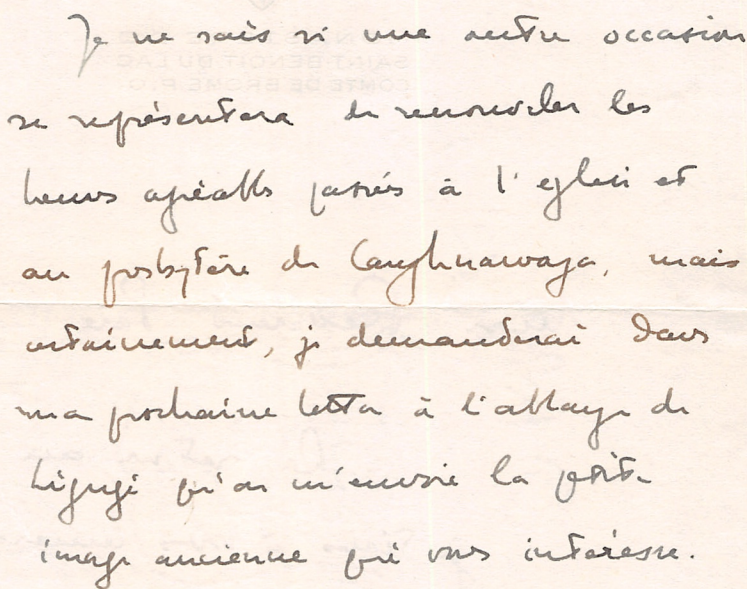 Je ne sais si une autre occasion
se représentera de renouveler les
heures agréables passées à l'église et
au presbytère de Caughnawaga, mais
certainement, je demanderai dans
ma prochaine lettre à l'abbaye de
Ligugé qu'on m'envoie la petite
image ancienne qui vous intéresse.